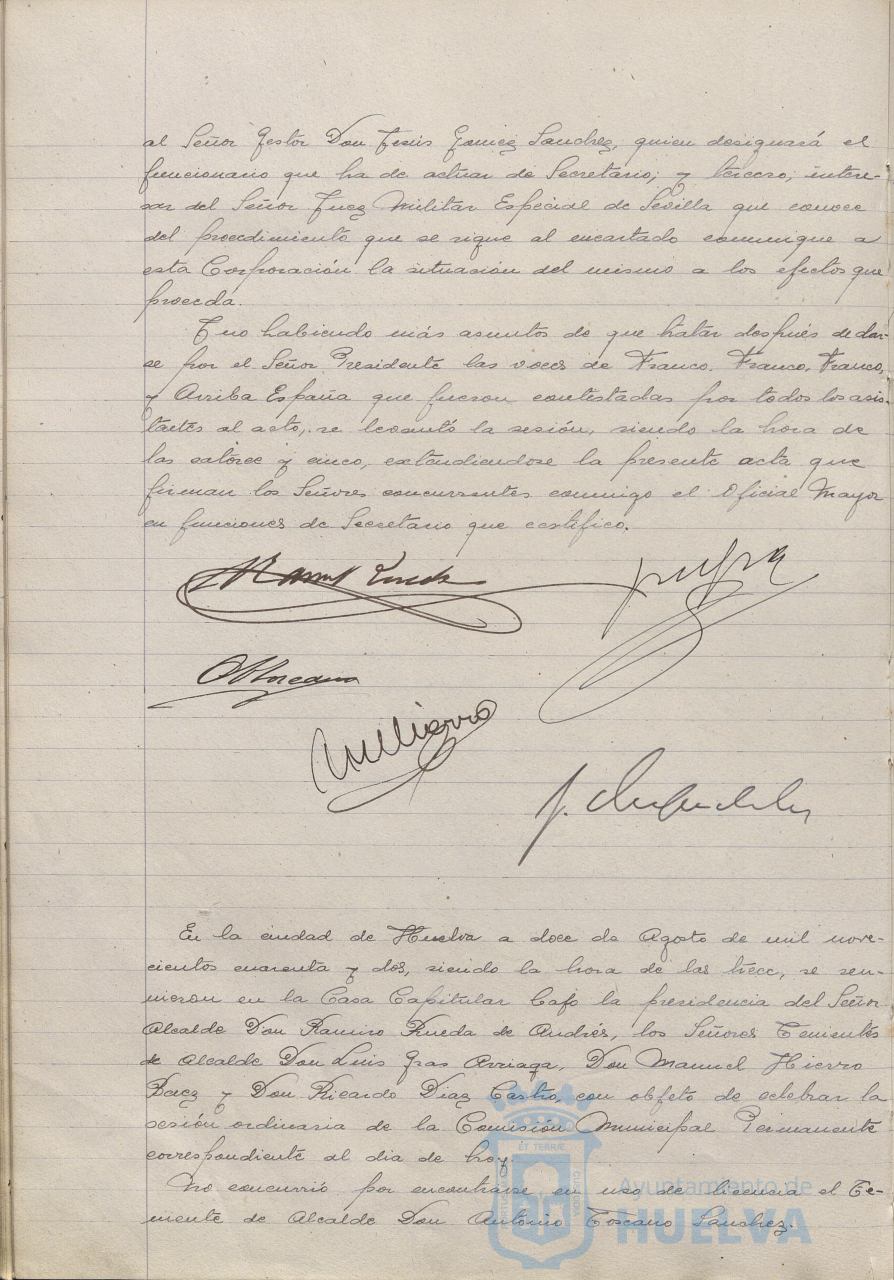 al Señor Gestor Don Jesús Gomez Sanchez, quien designará el
funcionario que ha de actuar de Secretario; y tercero, intere-
sar del Señor Juez Militar Especial de Sevilla que conoce
del procedimiento que se sigue al encartado comunique a
esta Corporación la situación del mismo a los efectos que
proceda.
Y no habiendo más asuntos de que tratar después de dar-
se por el Señor Presidente las voces de Franco, Franco, Franco,
y Arriba España que fueron contestadas por todos los asis-
tentes al acto, se levantó la sesión, siendo la hora de
las catorce y cinco, extendiendose la presente acta que
firman los Señores concurrentes conmigo el Oficial Mayor
en funciones de Secretario que certifico.
En la ciudad de Huelva a doce de Agosto de mil nove-
cientos cuarenta y dos, siendo la hora de las trece, se reu-
nieron en la Casa Capitular bajo la presidencia del Señor
Alcalde Don Ramiro Rueda de Andrés, los Señores Tenientes
de Alcalde Don Luis Gras Arriaga, Don Manuel Hierro
Baez y Don Ricardo Diaz Castro, con objeto de celebrar la
sesión ordinaria de la Comisión Municipal Permanente
correspondiente al dia de hoy.
No concurrió por encontrarse en uso de licencia el Te-
niente de Alcalde Don Antonio Toscano Sanchez.
Ayuntamiento de
HUELVA